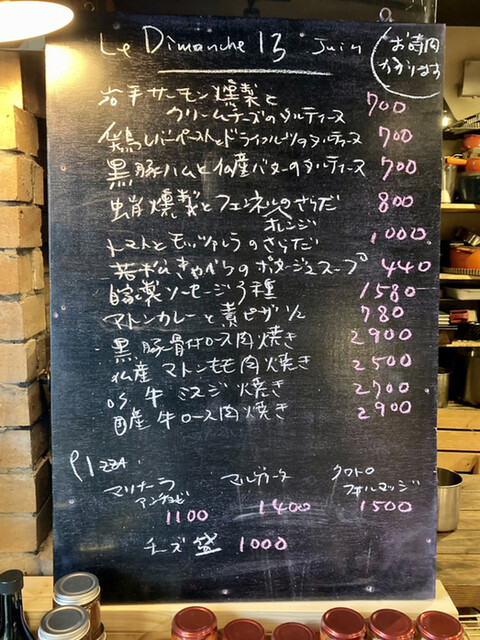 Le Dimanche 13 Juin
お時間
かかります
岩手サーモン燻製と
クリームチーズのタルティーヌ 700
鶏レバーペーストとドライフルーツのタルティーヌ 700
黒豚ハムと仏産バターのタルティーヌ 700
蛸燻製とフェンネルのさらだ 800
オレンジ
トマトとモッツァレラのさらだ 1000
きゃべつのポタージュスープ 440
自家製ソーセージ3種 1580
マトンカレーと素ピザ1/2 780
黒豚骨付ロース肉焼き 2900
仏産マトンもも肉焼き 2500
OS牛ミスジ焼き 2700
国産牛ロース肉焼き 2900
PIZZA
マリナーラ
アンチョビ 1100
マルゲリータ 1400
クワトロ
フォルマッジ 1500
チーズ盛 1000